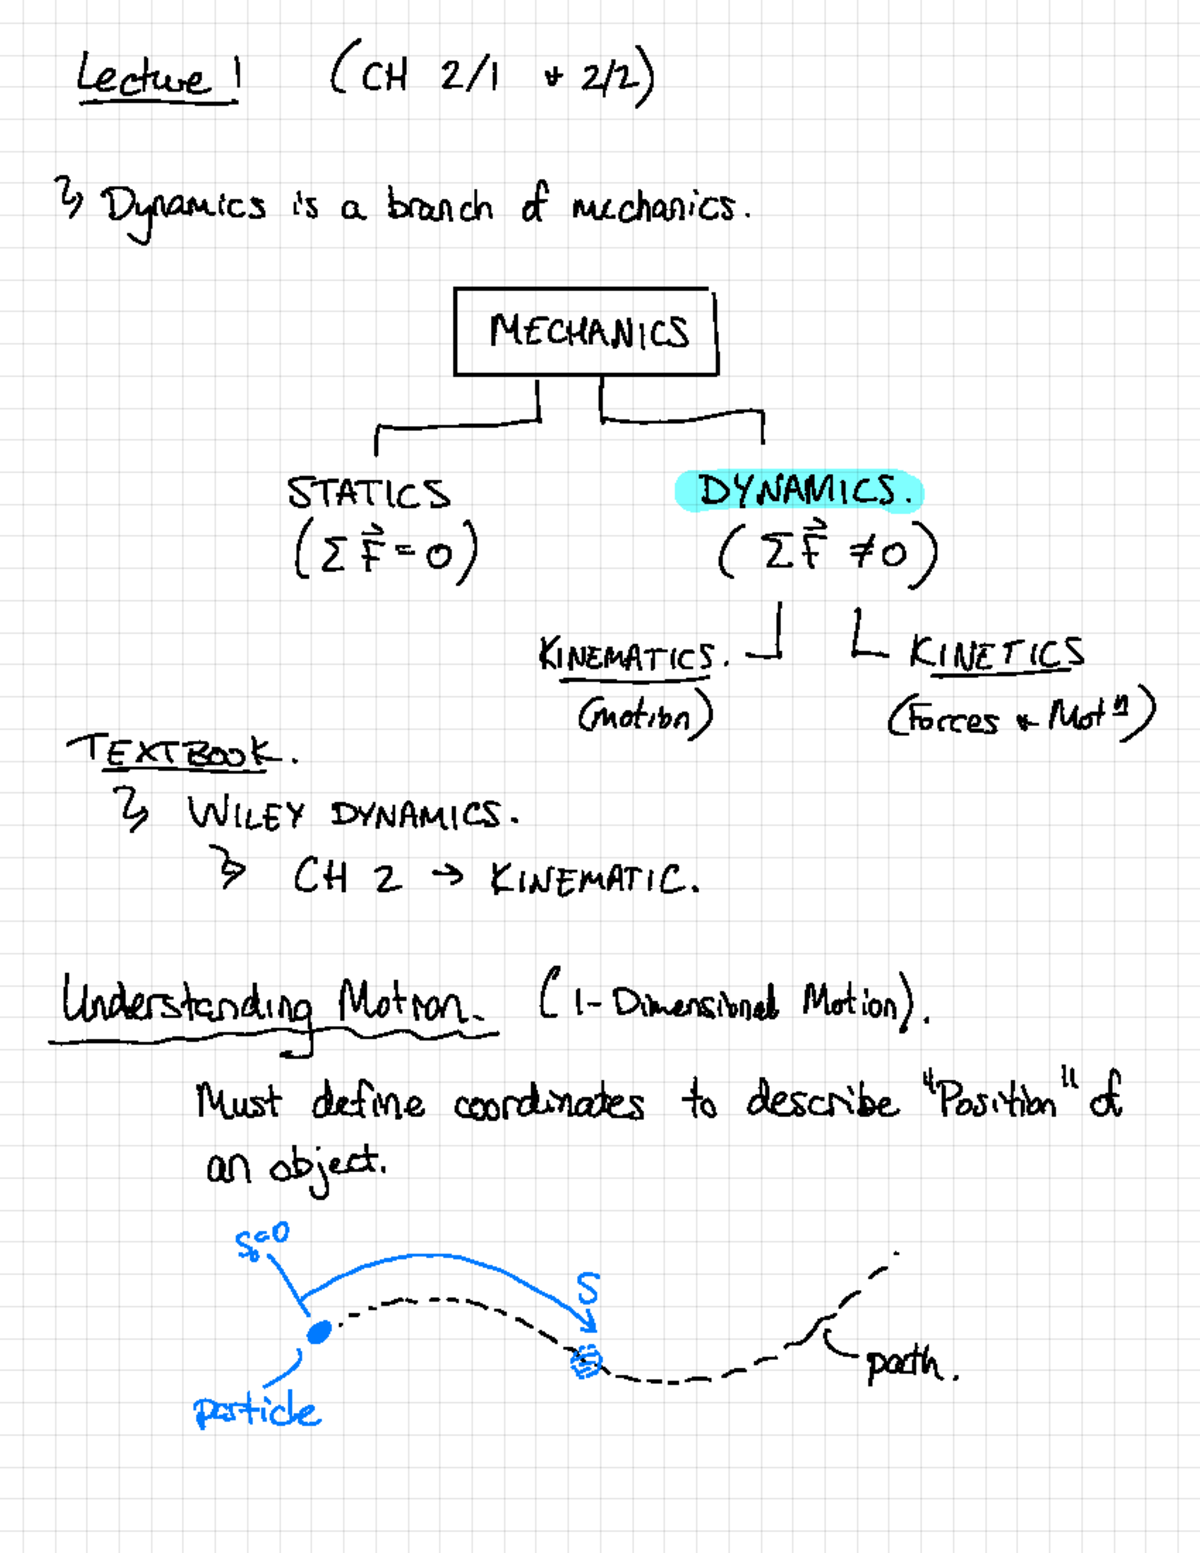 Lecture 1 (CH 2/1 + 2/2)
Dynamics is a branch of mechanics.
MECHANICS
STATICS DYNAMICS.
(Σ F⃗ = 0) (Σ F⃗ ≠ 0)
KINEMATICS. KINETICS
(motion) (Forces + Motⁿ)
TEXTBOOK.
WILEY DYNAMICS.
CH 2 → KINEMATIC.
Understanding Motion. (1-Dimensional Motion).
Must define coordinates to describe "Position" of
an object.
S₀=0
S
path.
particle